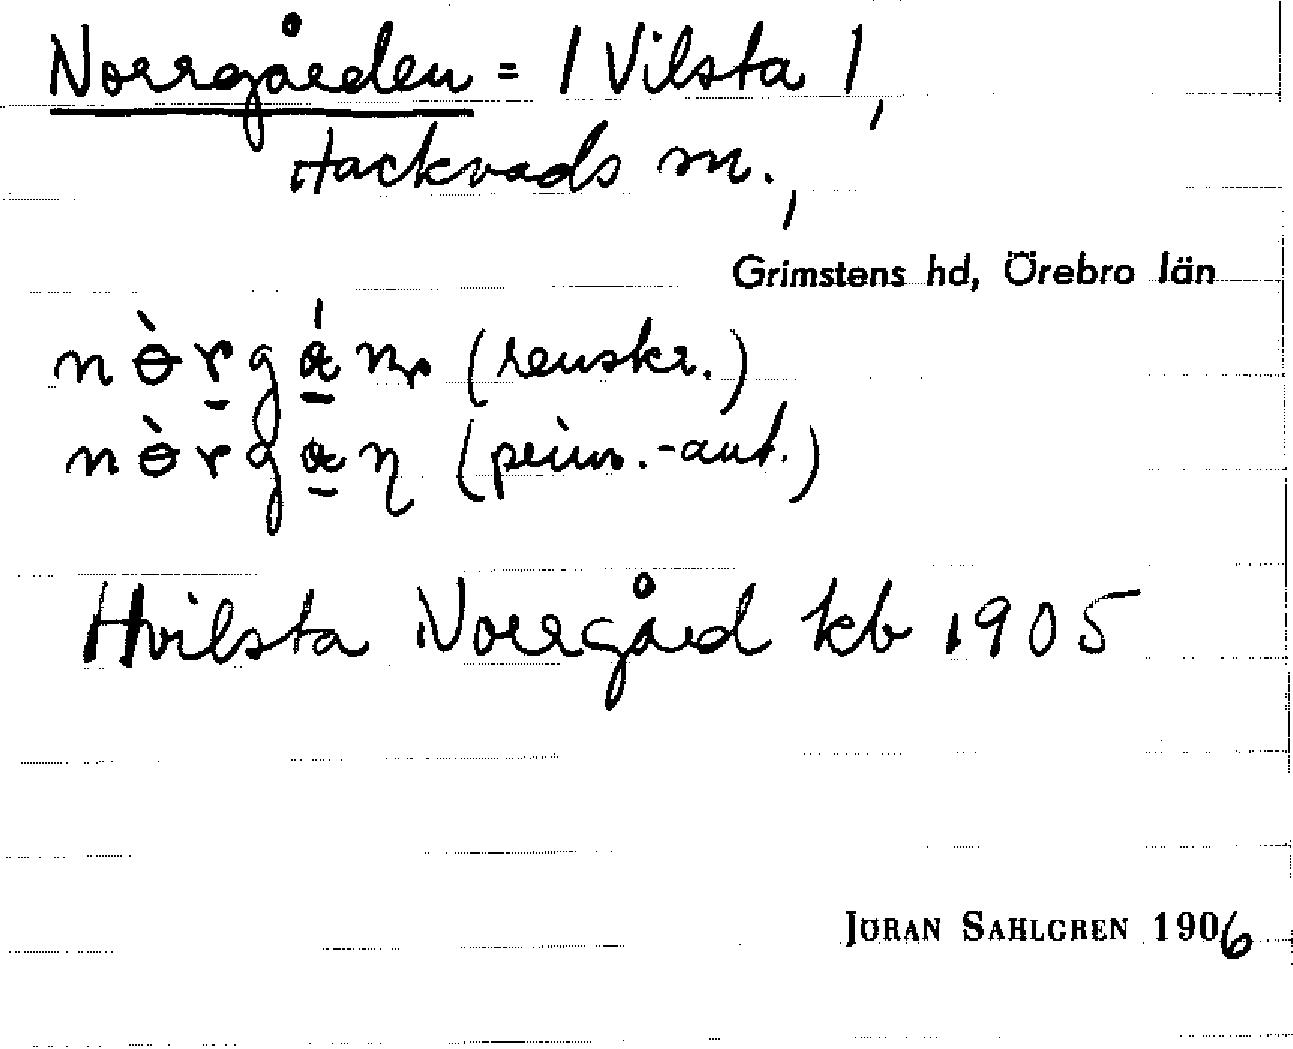 Norrgården = / Vilsta /,
Hackvads sn.,
Grimstens hd, Örebro län
(renskr.)
(prim.-ant.)
Hvilsta Norrgård kb 1905
JÖRAN SAHLGREN 1906